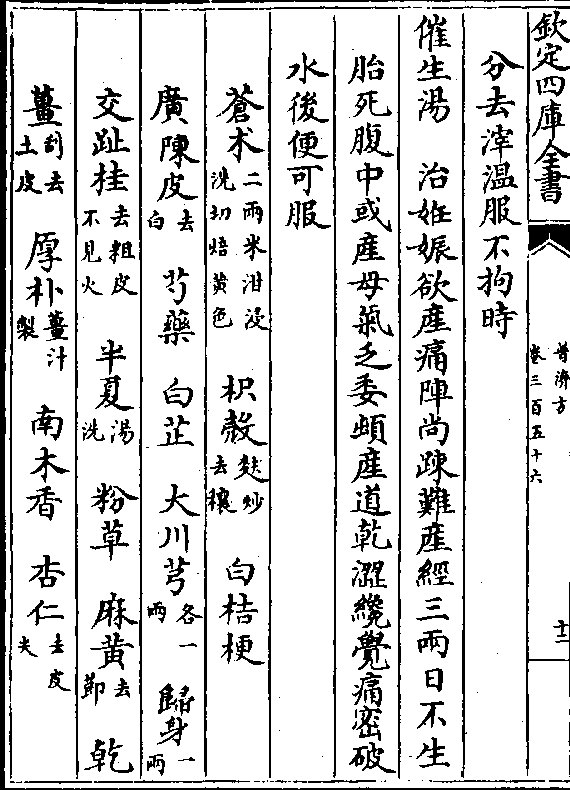 欽定四庫全書
普濟方
卷三百五十六
十二
分去滓温服不拘時
催生湯　治姙娠欲産痛陣尚踈難産經三兩日不生
胎死腹中或産母氣乏委頓産道乾澀纔覺痛密破
水後便可服
蒼术二兩米泔浸洗切焙黄色　枳殻去穰麩炒　白桔梗
廣陳皮去白　芍藥　白芷　大川芎各一兩　歸身一兩
交趾桂去粗皮不見火　半夏湯洗　粉草　麻黄去節　乾
薑刮去土皮　厚朴薑汁製　南木香　杏仁去皮尖